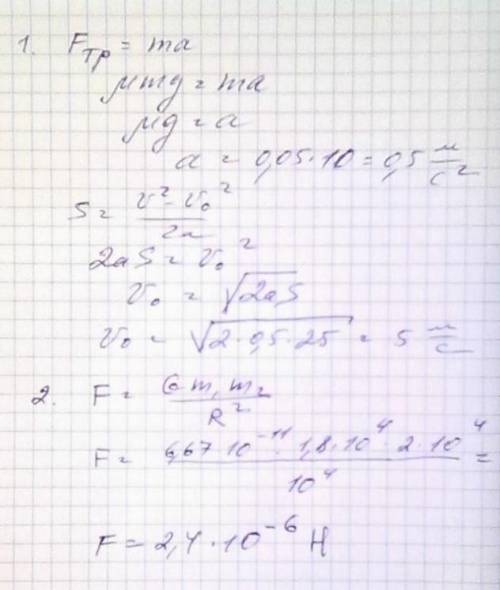 1. Fтр = ma
μmg = ma
μg = a
a = 0,05·10 = 0,5 м/с²
S = (v² - v₀²)/2a
2aS = v₀²
v₀ = √2aS
v₀ = √2·0,5·25 = 5 м/с
2. F = G m₁ m₂/R²
F = 6,67·10⁻¹¹·1,8·10⁴·2·10⁴/10⁴ =
F = 2,4·10⁻⁶ Н